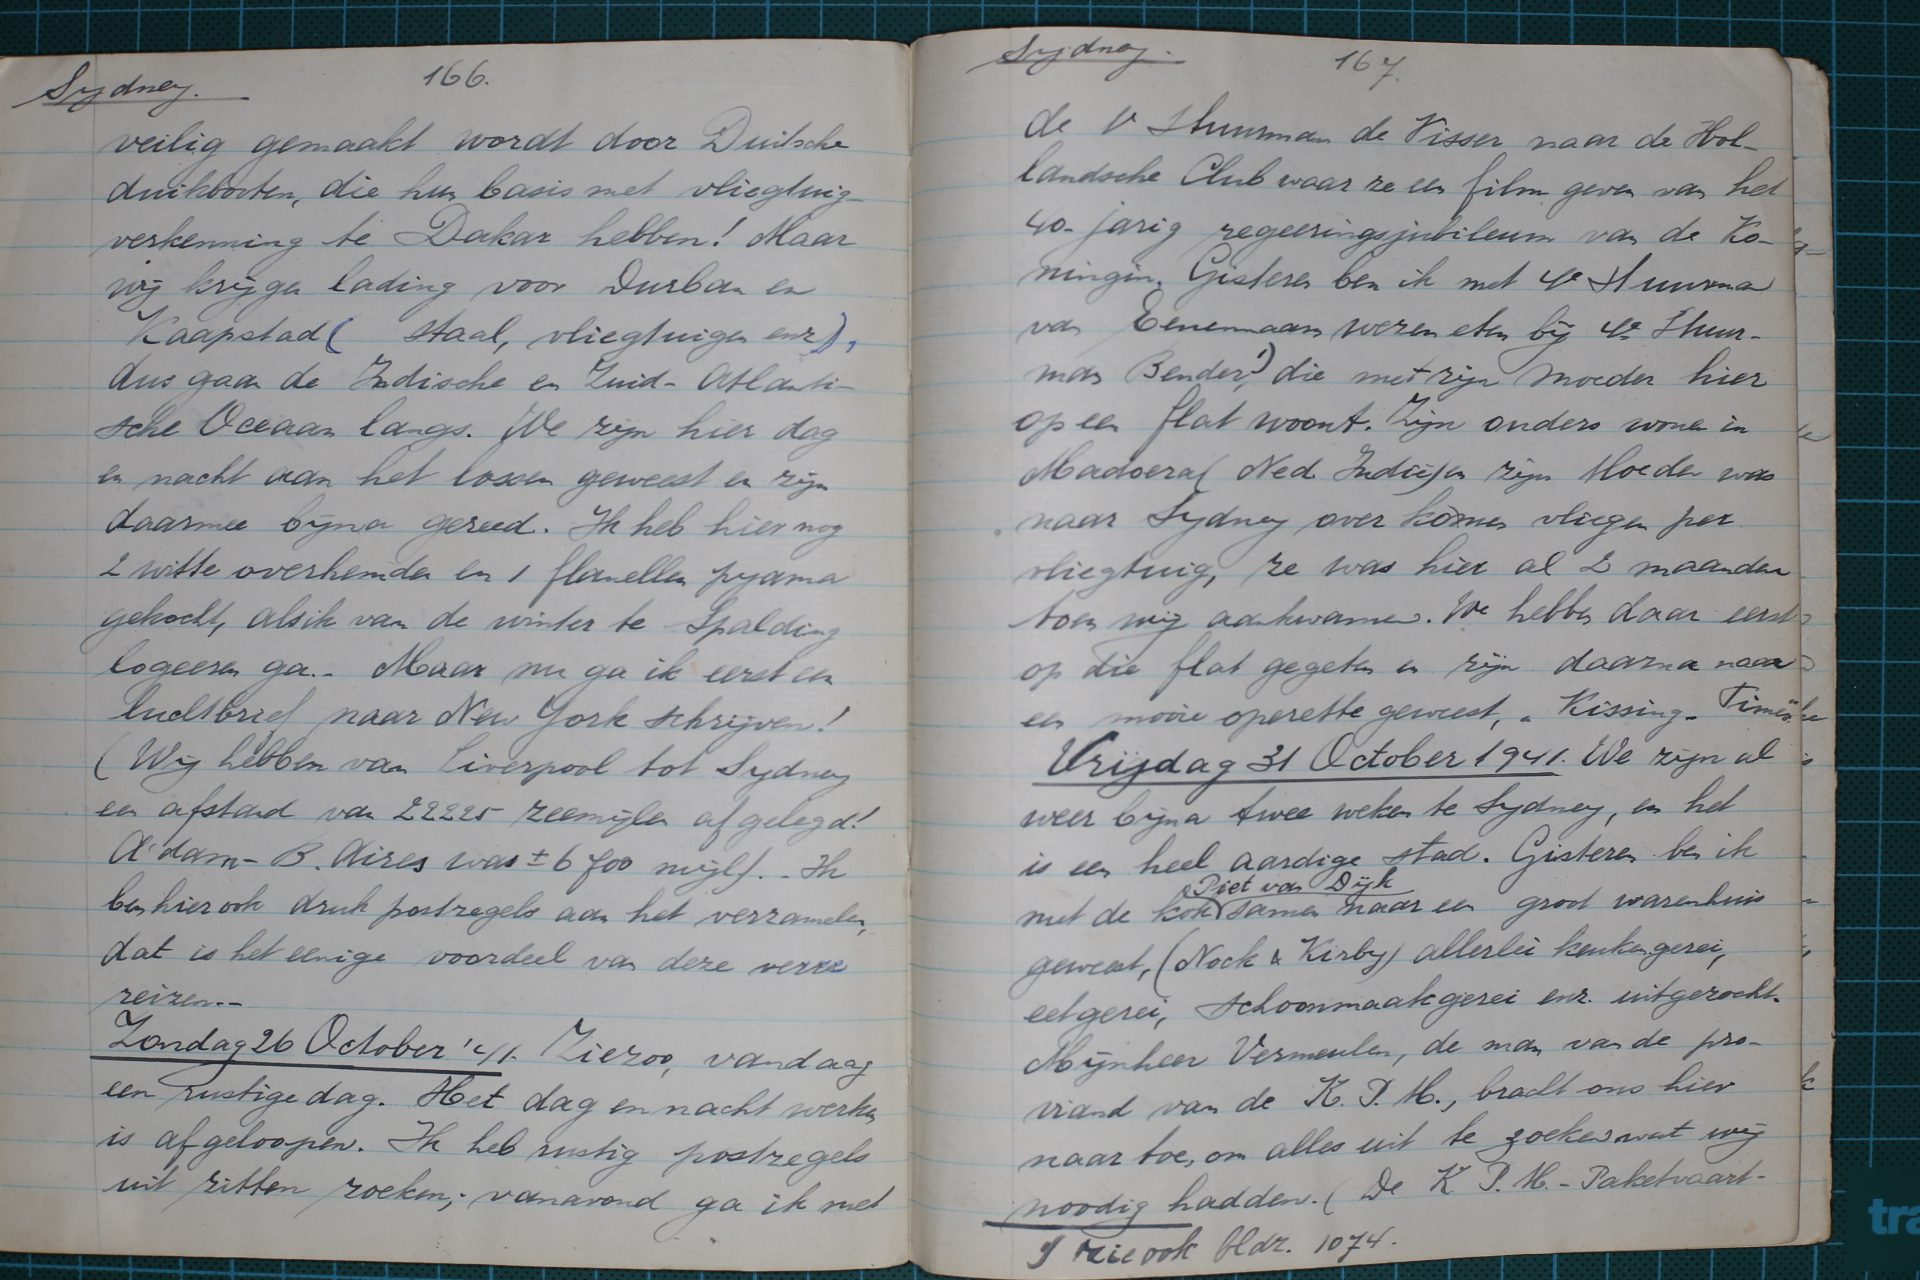 Sydney. 166.
veilig gemaakt wordt door Duitsche
duikboten, die hun basis met vliegtuig-
verkenning te Dakar hebben! Maar
wij krijgen lading voor Durban en
Kaapstad ( staal, vliegtuigen enz),
dus gaan de Indische en Zuid-Atlanti-
sche Oceaan langs. We zijn hier dag
en nacht aan het lossen geweest en zijn
daarmee bijna gereed. Ik heb hier nog
2 witte overhemden en 1 flanellen pyama
gekocht, als ik van de winter te Spalding
logeeren ga.- Maar nu ga ik eerst een
luchtbrief naar New York schrijven!
(Wij hebben van Liverpool tot Sydney
een afstand van 22225 zeemijlen afgelegd!
A'dam - B. Aires was ± 6700 mijl). - Ik
ben hier ook druk postzegels aan het verzamelen,
dat is het eenige voordeel van deze verre
reizen.--
Zondag 26 October '41. Ziezoo, vandaag
een rustige dag. Het dag en nacht werken
is afgeloopen. Ik heb rustig postzegels
uit zitten zoeken; vanavond ga ik met
Sydney. 167.
de 1e Stuurman de Visser naar de Hol-
landsche Club waar ze een film geven van het
40-jarig regeeringsjubileum van de Ko-
ningin. Gisteren ben ik met 4e Stuurman
van Eenennaam wezen eten bij 4e Stuur-
man Bender,¹) die met zijn moeder hier
op een flat woont. Zijn ouders wonen in
Madoera ( Ned Indië) en zijn Moeder was
naar Sydney over komen vliegen per
vliegtuig, ze was hier al 2 maanden
toen wij aankwamen. We hebben daar eerst
op die flat gegeten en zijn daarna naar
een mooie operette geweest, „Kissing-Time"
Vrijdag 31 October 1941. We zijn al
weer bijna twee weken te Sydney, en het
is een heel aardige stad. Gisteren ben ik
Piet van Dijk
met de kok samen naar een groot warenhuis
geweest, (Nock & Kirby) allerlei keukengerei,
eetgerei, schoonmaakgerei enz. uitgezocht.
Mijnheer Vermeulen, de man van de pro-
viand van de K.P.M., bracht ons hier
naar toe, om alles uit te zoeken wat wij
noodig hadden. ( De K P.M. - Paketvaart-
1) zie ook bldz. 1074.